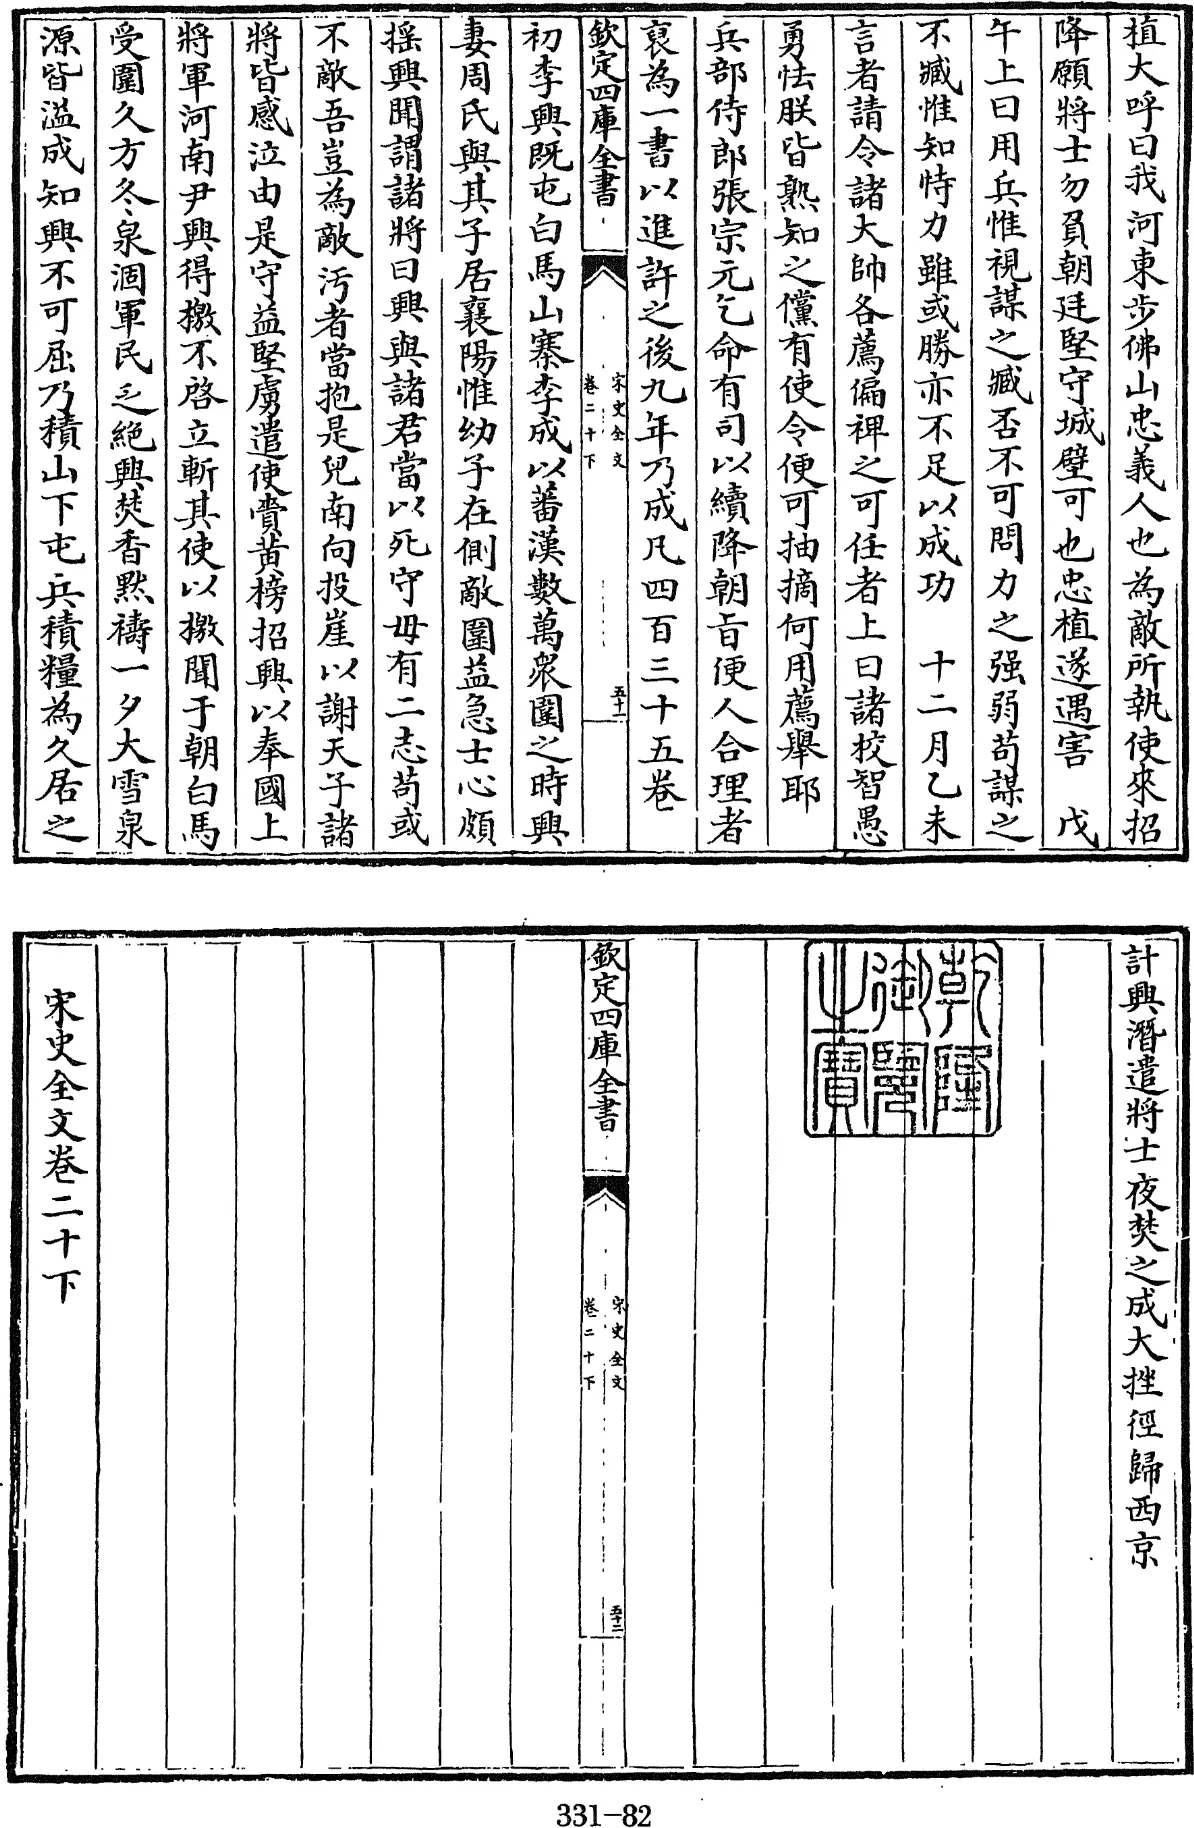 植大呼曰我河東步佛山忠義人也為敵所執使來招
降願將士勿負朝廷堅守城壁可也忠植遂遇害　戊
午上曰用兵惟視謀之臧否不可問力之强弱苟謀之
不臧惟知恃力雖或勝亦不足以成功　十二月乙未
言者請令諸大帥各薦偏裨之可任者上曰諸校智愚
勇怯朕皆熟知之儻有使令便可抽摘何用薦舉耶
兵部侍郎張宗元乞命有司以續降朝旨便人合理者
裒為一書以進許之後九年乃成凡四百三十五卷
欽定四庫全書
宋史全文
卷二十下
五十一
初李興既屯白馬山寨李成以蕃漢數萬衆圍之時興
妻周氏與其子居襄陽惟幼子在側敵圍益急士心頗
揺興聞謂諸將曰興與諸君當以死守毋有二志苟或
不敵吾豈為敵汚者當抱是兒南向投崖以謝天子諸
將皆感泣由是守益堅虜遣使賫黄榜招興以奉國上
將軍河南尹興得檄不啓立斬其使以檄聞于朝白馬
受圍久方冬泉涸軍民乏絶興焚香黙禱一夕大雪泉
源皆溢成知興不可屈乃積山下屯兵積糧為久居之
計興潛遣將士夜焚之成大挫徑歸西京
乾隆御覽之寶
欽定四庫全書
宋史全文
卷二十下
五十二
宋史全文卷二十下
331-82